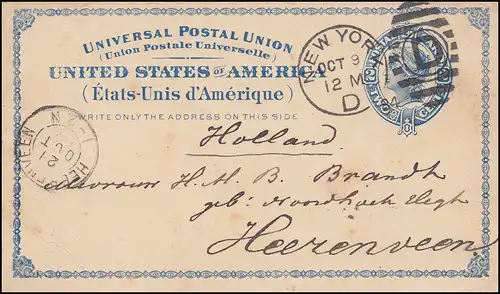 UNIVERSAL POSTAL UNION
(Union Postale Universelle)
UNITED STATES OF AMERICA
(États-Unis d'Amérique)
WRITE ONLY THE ADDRESS ON THIS SIDE
NEW YORK
OCT 9
12 M
D
HEERENVEEN
21
OCT
Holland
Mevrouw H. M. B. Brandt
geb: Noordhoek Hegt
Heerenveen